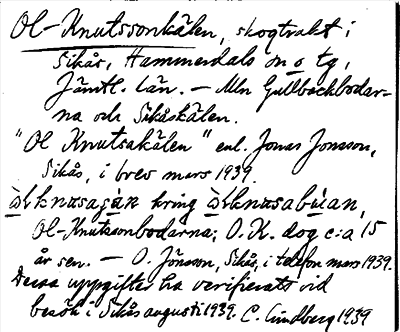 Ol-Knutssonkälen, skogtrakt i
Sikås, Hammerdals sn o tg,
Jämtl. län. – Mln Gullbäckbodar-
na och Sikåskälen.
"Ol Knutsakälen" enl. Jonas Jonsson,
Sikås, i brev mars 1939.
kring
Ol-Knutssonbodarna; O. K. dog c:a 15
år sen. – O. Jönsson, Sikås, i telefon mars 1939.
Dessa uppgifter ha verifierats vid
besök i Sikås augusti 1939. C. Lindberg 1939